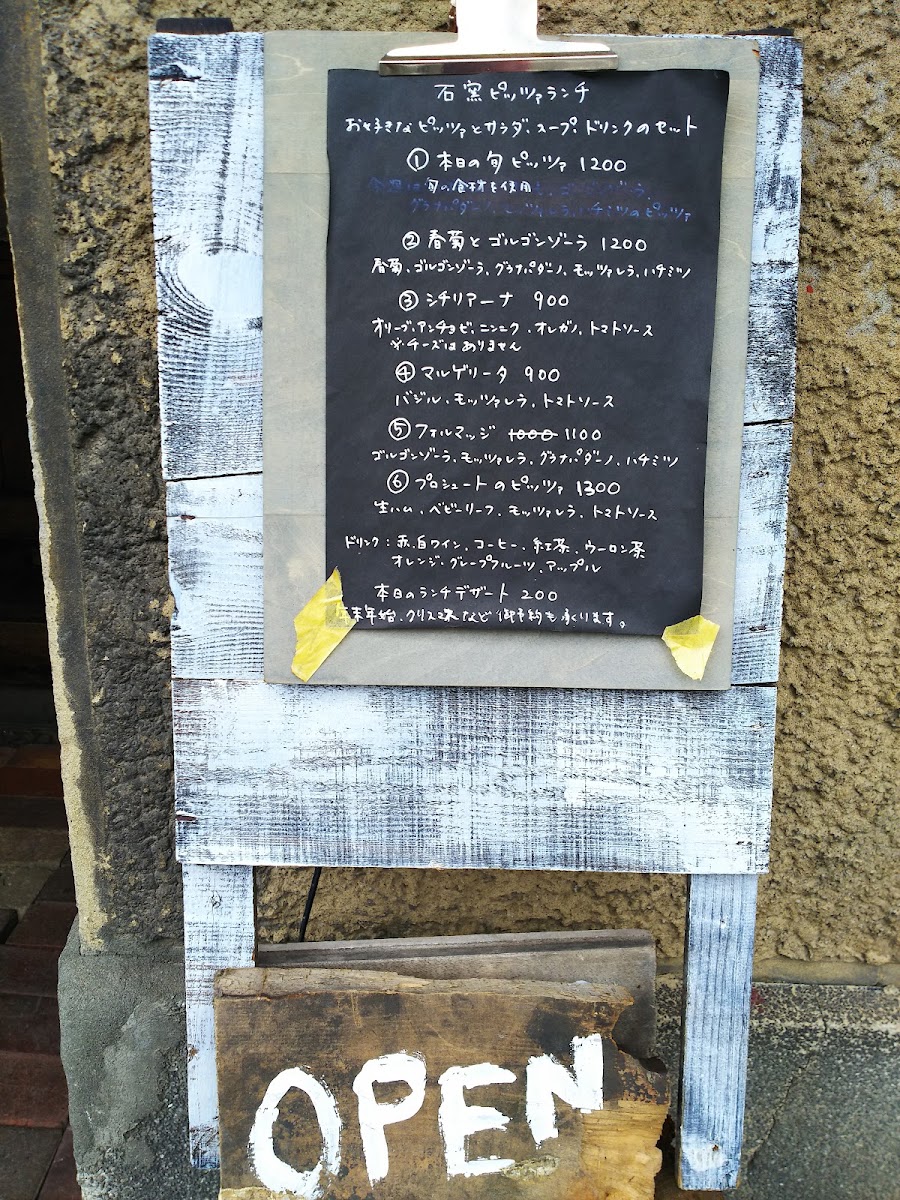 石窯ピッツァランチ
お好きなピッツァとサラダ、スープ、ドリンクのセット
① 本日の旬ピッツァ 1200
旬の食材を使用
グラナパダーノ、モッツァレラ、ハチミツのピッツァ
② 春菊とゴルゴンゾーラ 1200
春菊、ゴルゴンゾーラ、グラナパダーノ、モッツァレラ、ハチミツ
③ シチリアーナ 900
オリーブ、アンチョビ、ニンニク、オレガノ、トマトソース
※チーズはありません
④ マルゲリータ 900
バジル、モッツァレラ、トマトソース
⑤ フォルマッジ 1000 1100
ゴルゴンゾーラ、モッツァレラ、グラナパダーノ、ハチミツ
⑥ プロシュートのピッツァ 1300
生ハム、ベビーリーフ、モッツァレラ、トマトソース
ドリンク：赤、白ワイン、コーヒー、紅茶、ウーロン茶
オレンジ、グレープフルーツ、アップル
本日のランチデザート 200
年末年始、クリスマスなど御予約も承ります。
OPEN